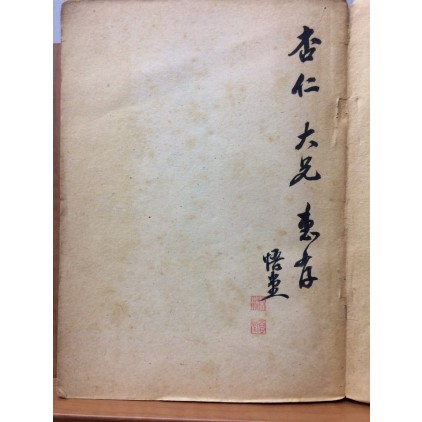 杏仁 大兄 惠存
悟堂